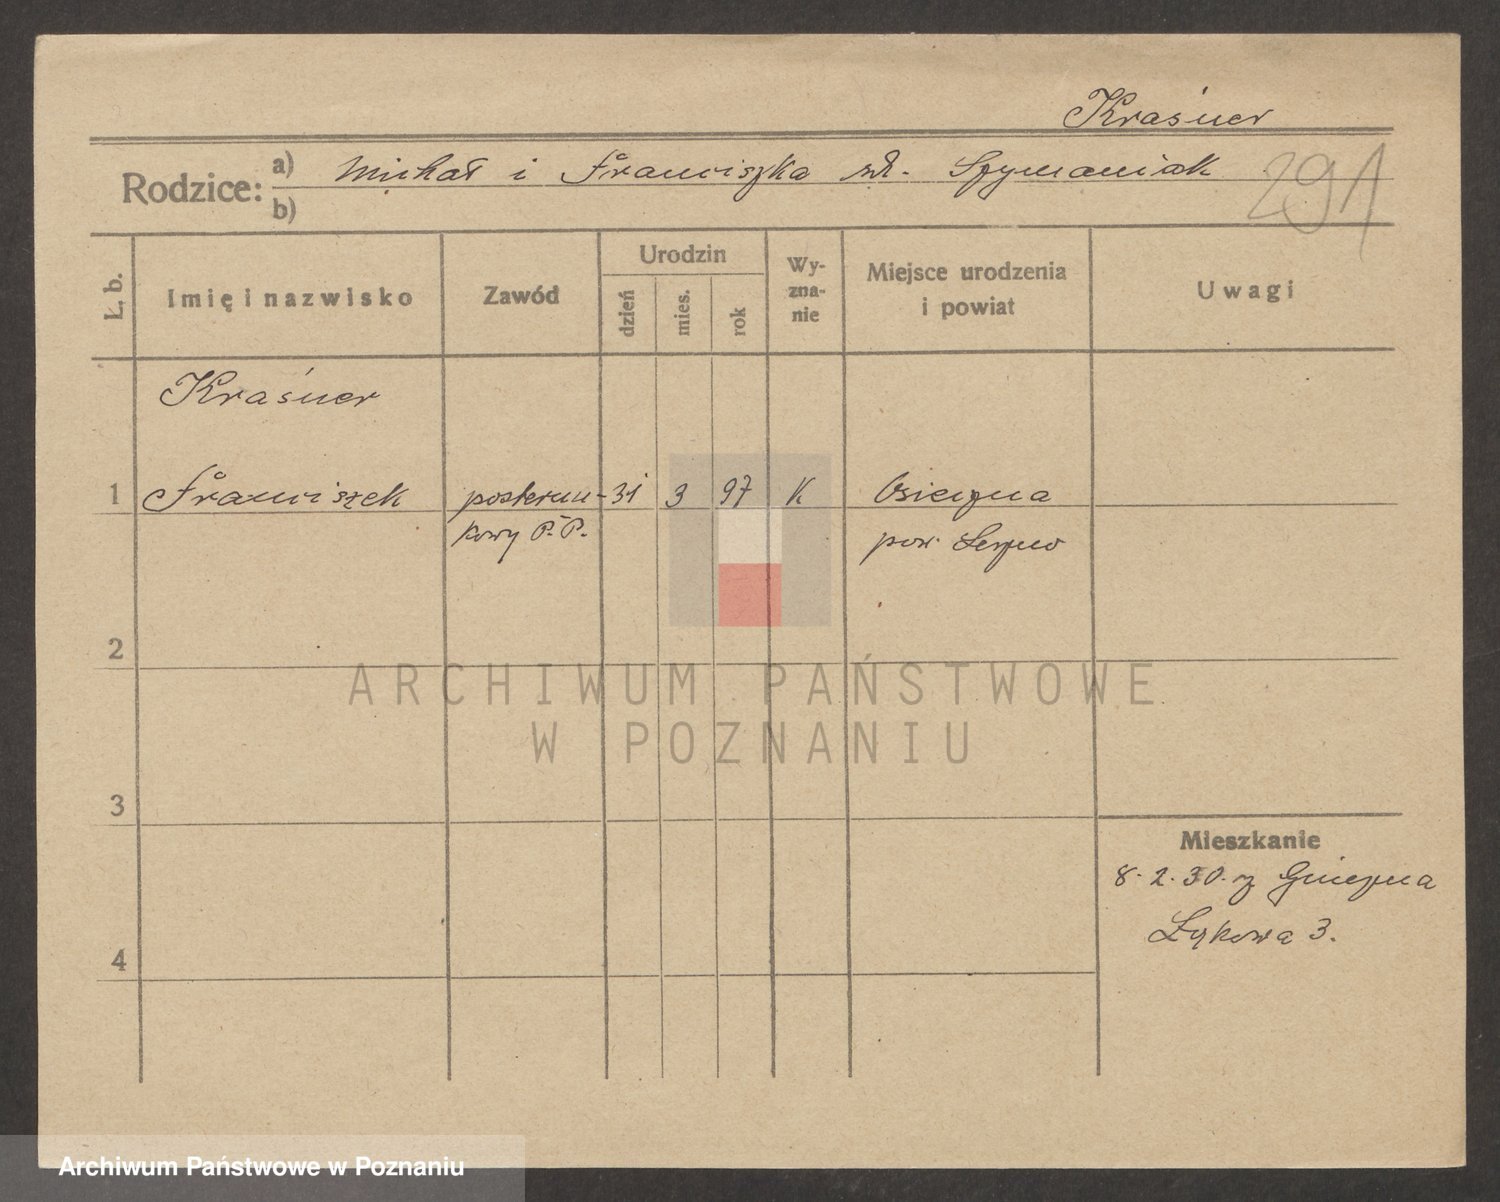 Kraśner
Rodzice: a) Michał i Franciszka zd. Szymaniak
b)
291
L. b.
Imię i nazwisko
Zawód
Urodzin
dzień
mies.
rok
Wy-
zna-
nie
Miejsce urodzenia
i powiat
Uwagi
Kraśner
1 Franciszek posterun- 31 3 97 K Osieczna
kowy P.P. pow. Leszno
2
3
4
Mieszkanie
8.2.30. z Gniezna
Łąkowa 3.
ARCHIWUM PAŃSTWOWE
W POZNANIU
Archiwum Państwowe w Poznaniu